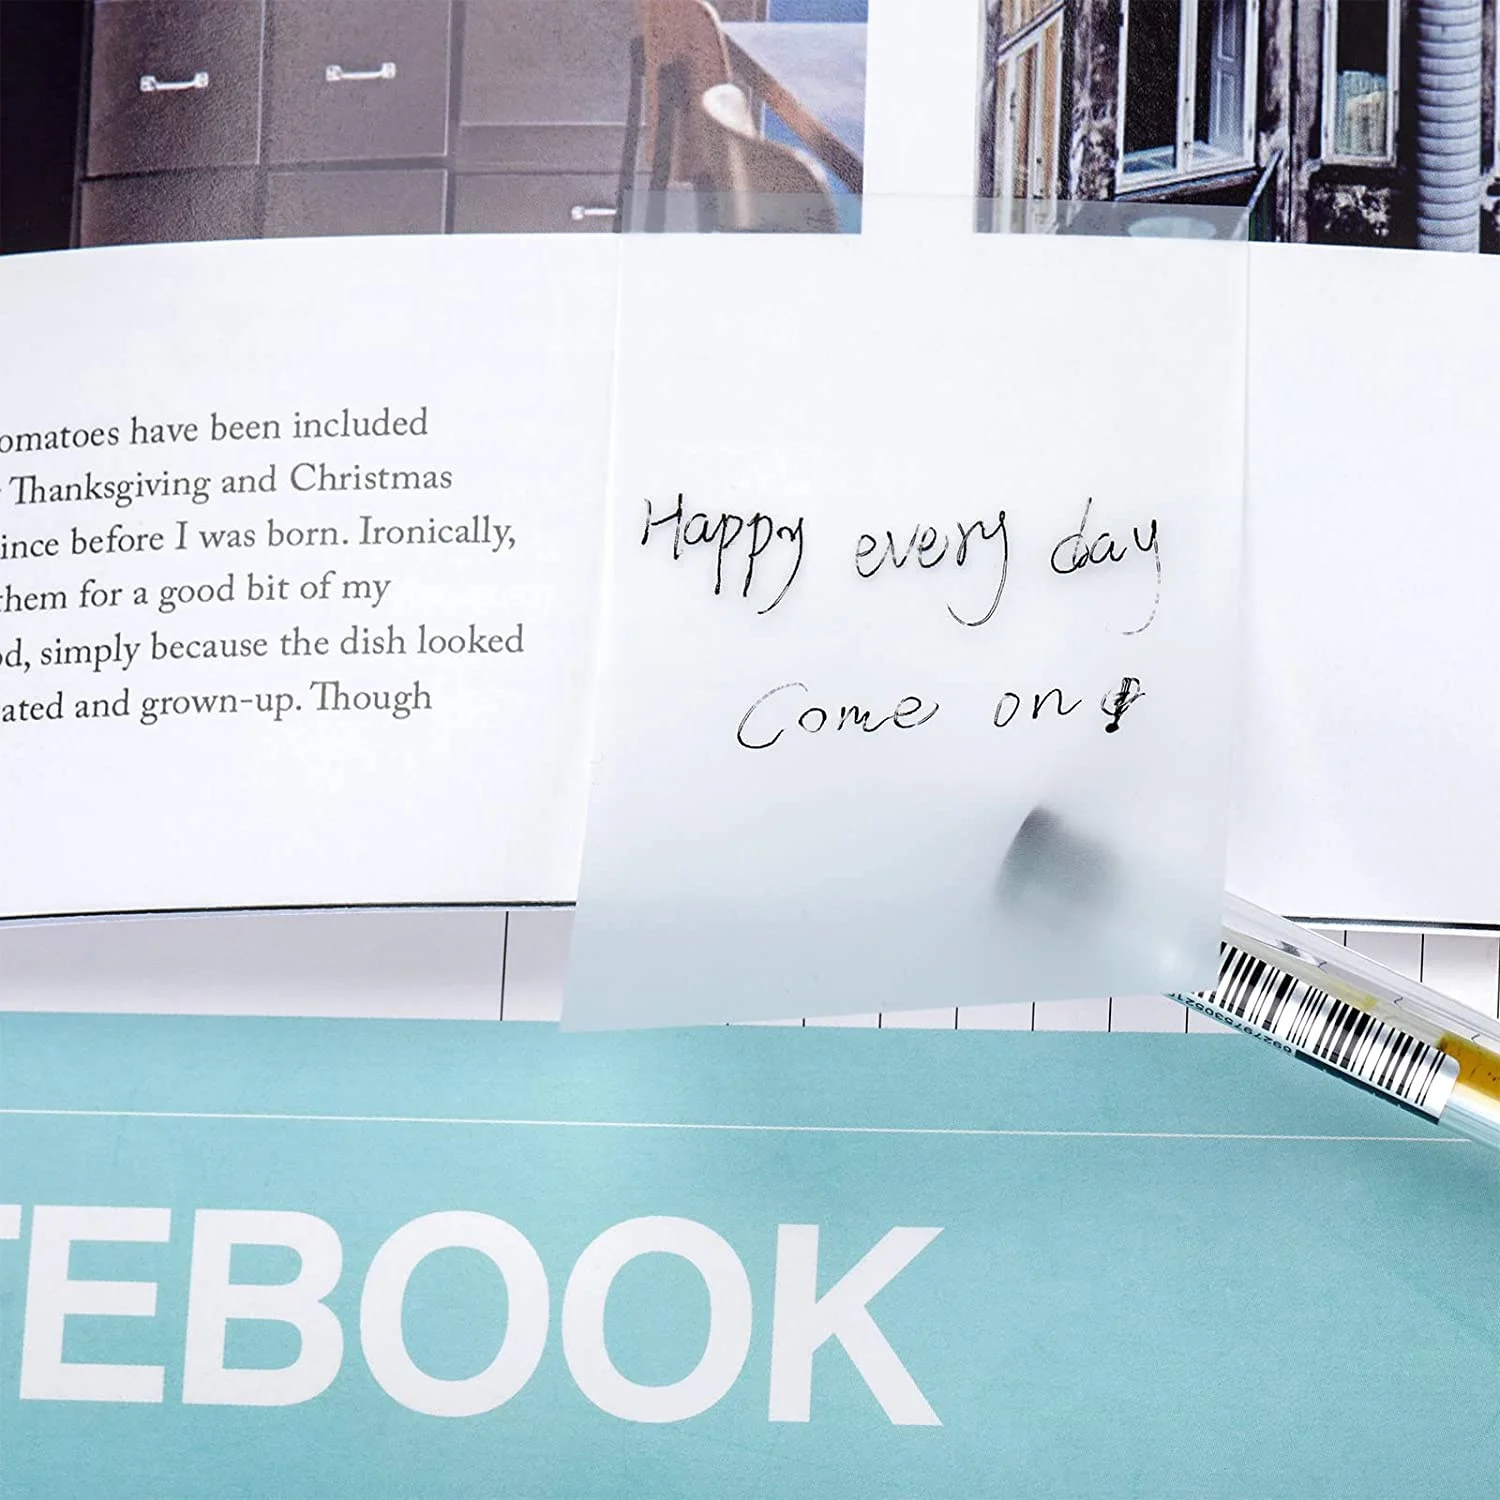 omatoes have been included
Thanksgiving and Christmas
ince before I was born. Ironically,
them for a good bit of my
od, simply because the dish looked
ated and grown-up. Though
Happy every day
Come on!
TEBOOK